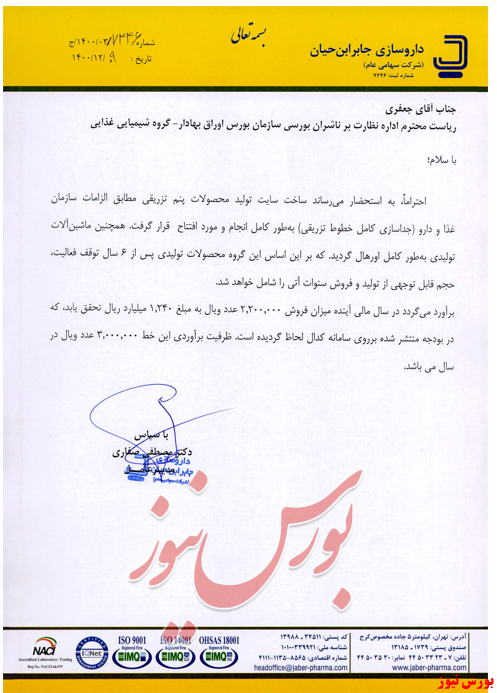 بسمه تعالی
داروسازی جابرابن‌حیان
(شرکت سهامی عام)
شماره ثبت: ۷۶۴۶
شماره: ۱۴۰۰/۰۳/۷۴۴۶/ج
تاریخ : ۱۴۰۰/۱۲/۰۹
جناب آقای جعفری
ریاست محترم اداره نظارت بر ناشران بورسی سازمان بورس اوراق بهادار- گروه شیمیایی غذایی
با سلام؛
احتراماً، به استحضار می‌رساند ساخت سایت تولید محصولات پنم تزریقی مطابق الزامات سازمان
غذا و دارو (جداسازی کامل خطوط تزریقی) به‌طور کامل انجام و مورد افتتاح قرار گرفت. همچنین ماشین‌آلات
تولیدی به‌طور کامل اورهال گردید. که بر این اساس این گروه محصولات تولیدی پس از ۶ سال توقف فعالیت،
حجم قابل توجهی از تولید و فروش سنوات آتی را شامل خواهد شد.
برآورد می‌گردد در سال مالی آینده میزان فروش ۲,۲۰۰,۰۰۰ عدد ویال به مبلغ ۱,۲۴۰ میلیارد ریال تحقق یابد، که
در بودجه منتشر شده برروی سامانه کدال لحاظ گردیده است. ظرفیت برآوردی این خط ۳,۰۰۰,۰۰۰ عدد ویال در
سال می باشد.
با سپاس
دکتر مصطفی صفاری
مدیرعامل
داروسازی
جابرابن‌حیان
(شرکت سهامی عام)
بورس نیوز
آدرس: تهران، کیلومتر ۵ جاده مخصوص کرج
صندوق پستی: ۱۷۳۹ - ۱۳۱۸۵
تلفن: ۷ - ۳۳ ۳۳ ۵۰ ۴۴ نمابر: ۳۰ ۳۵ ۵۰ ۴۴
www.jaber-pharma.com
کد پستی: ۳۴۵۱۱ - ۱۳۹۸۸
شناسه ملی: ۱۰۱۰۰۳۳۹۹۲۱
شماره اقتصادی: ۸۵۶۵-۱۱۳۵-۴۱۱۱
headoffice@jaber-pharma.com
NACI
Accredited Laboratory: Testing
IQNet
ISO 9001
ISO 14001
OHSAS 18001
Registered Firm
Registered Firm
Registered Firm
IMQ
IMQ
IMQ
بورس نیوز